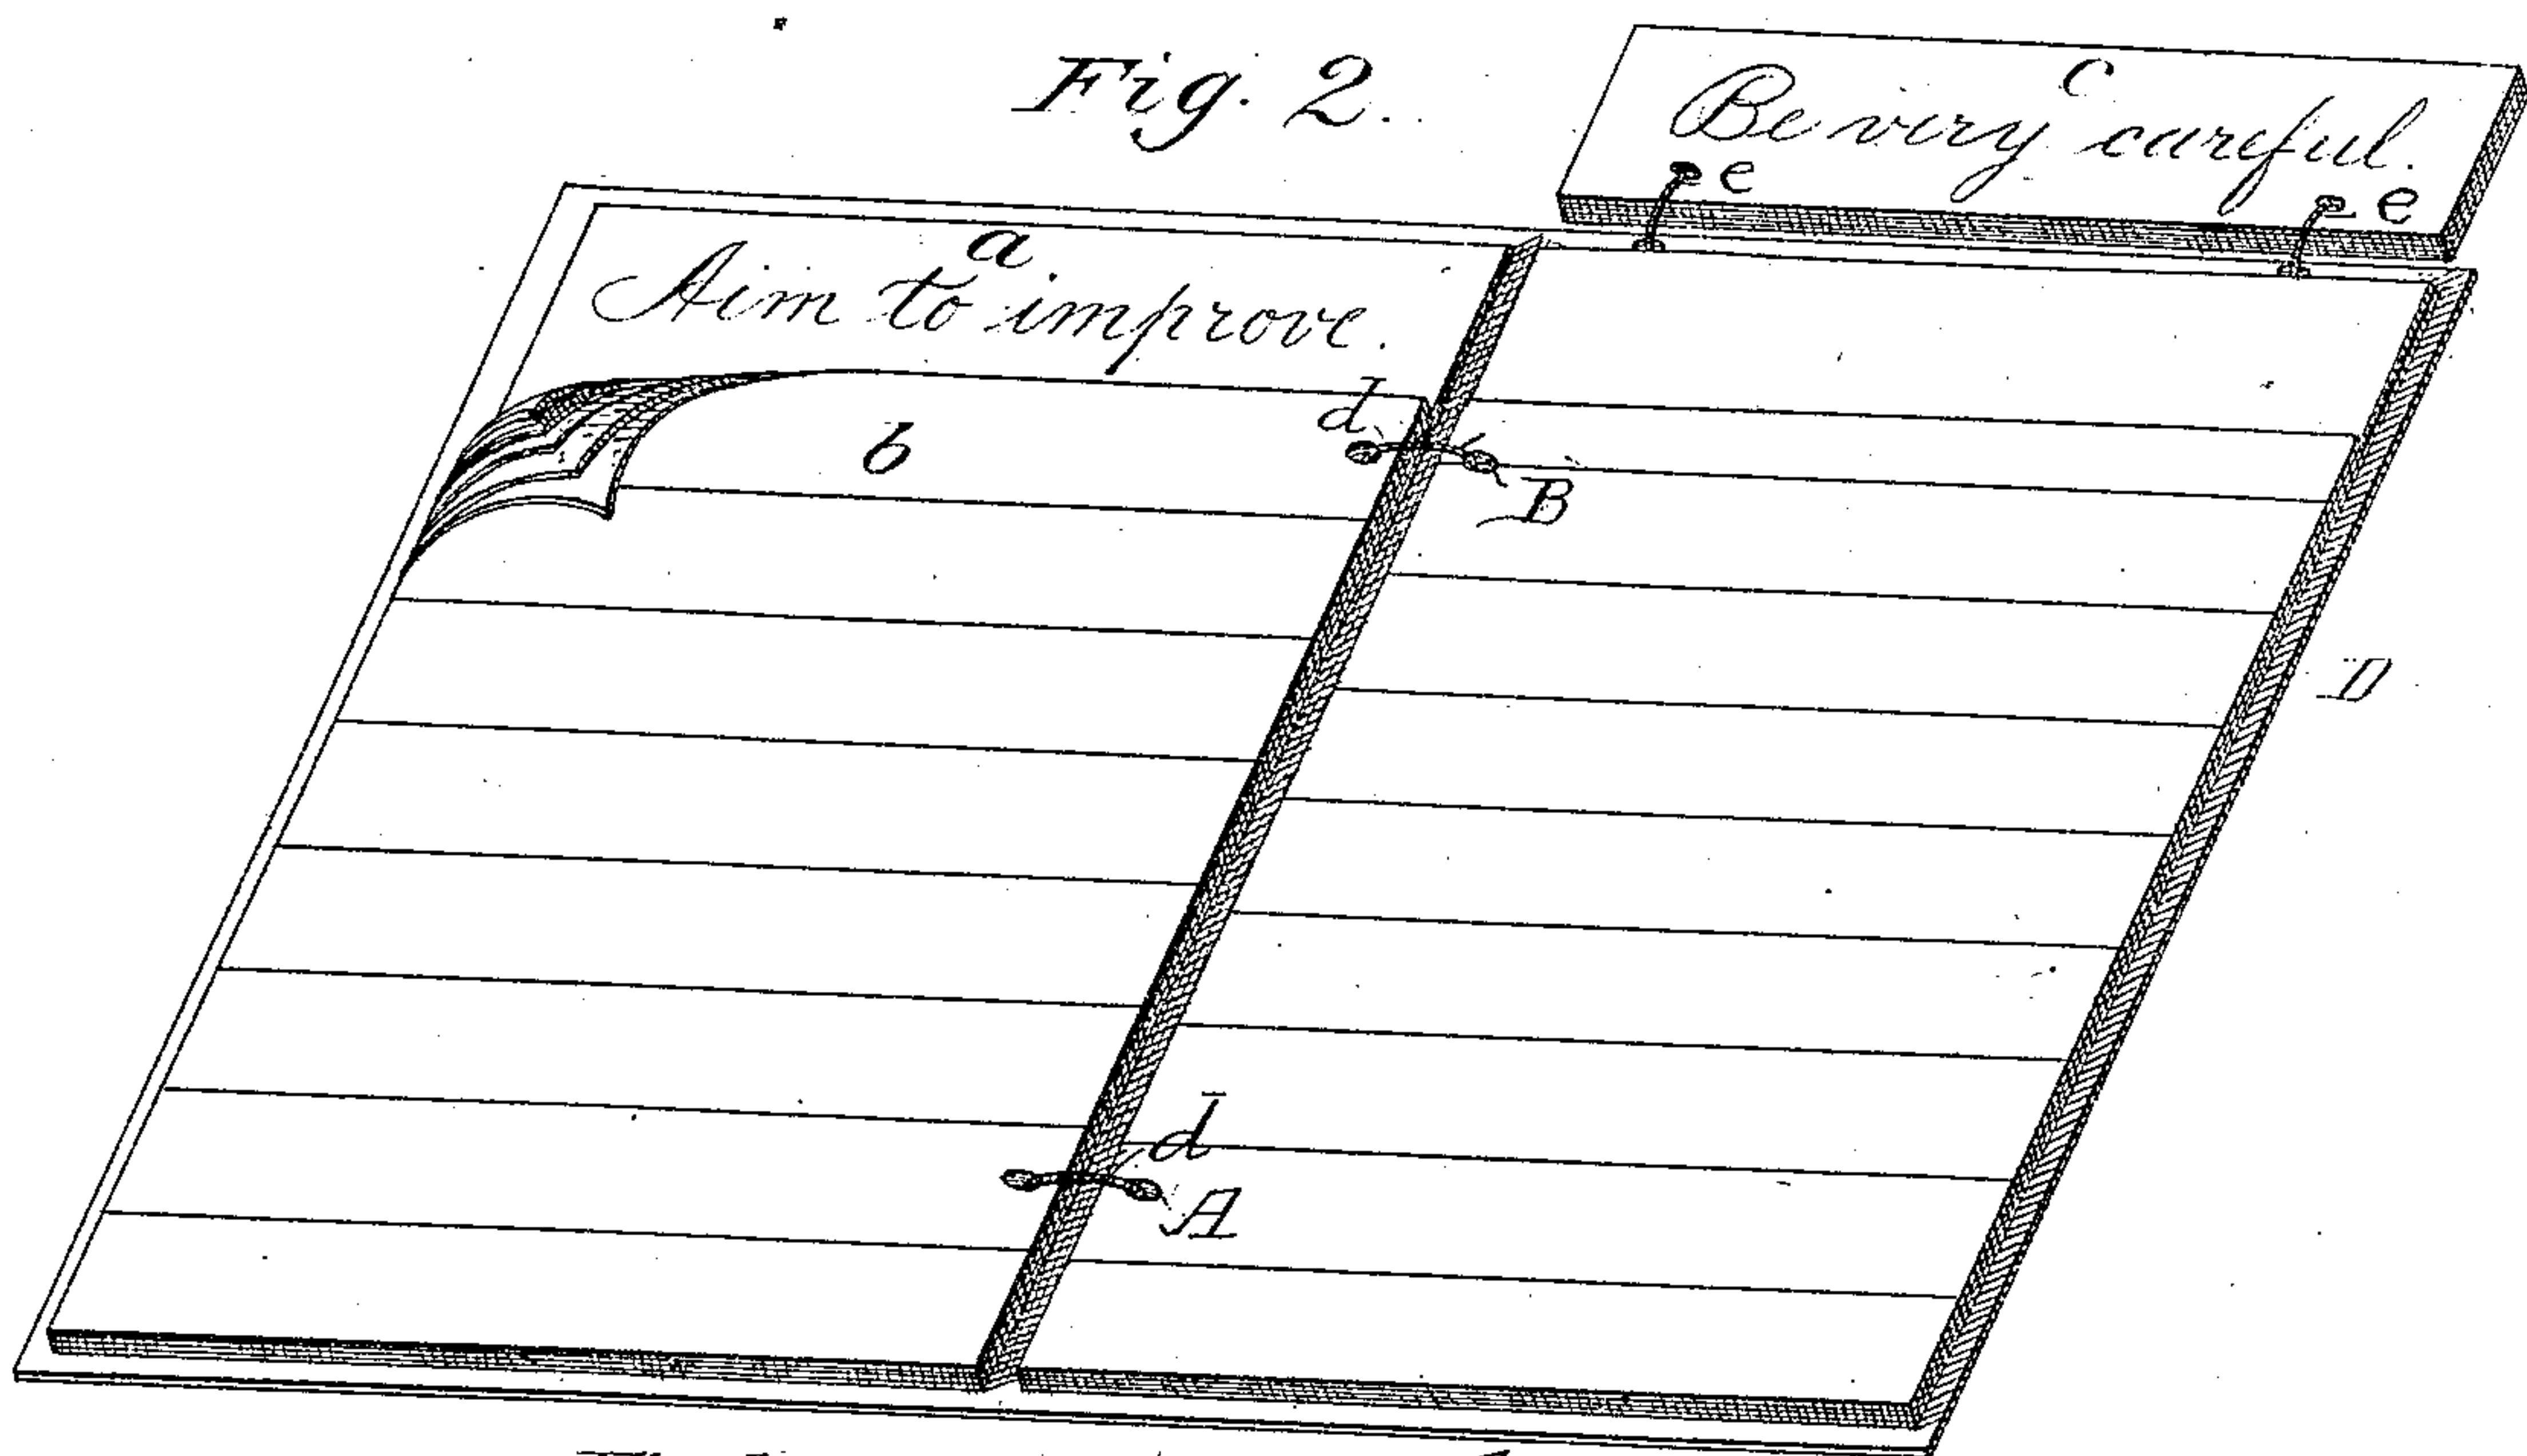 Fig. 2.
c
Be very careful.
e e
a
Aim to improve.
d
b
B
D
d
A